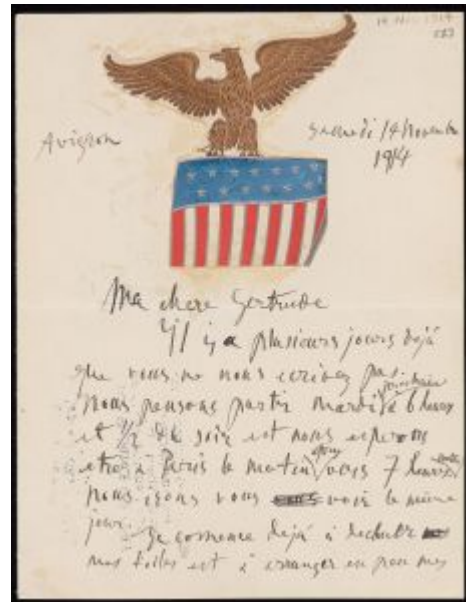 14 Nov 1914
Avignon
Samedi 14 Novembre
1914
Ma chere Gertrude
Il y a plusieurs jours dejá
que vous ne nous ecrivez pas
prochain
Nous pensons partir mardi a 6 heures
et ½ du soir et nous esperons
etre a Paris le matin vers 7 heures
nous irons vous voir le même
jour. Je comence dejá à
mes toiles et à arranger un peu mes